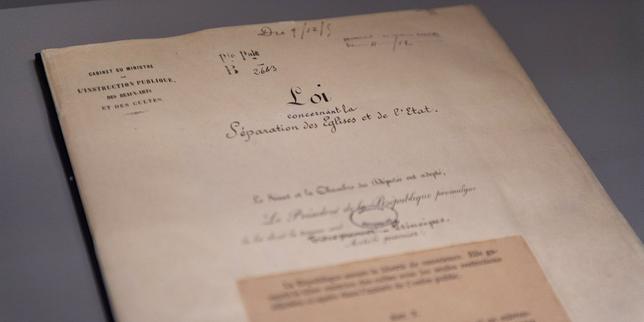 Du 9/12/5
CABINET DU MINISTRE
DE
L'INSTRUCTION PUBLIQUE,
DES BEAUX-ARTS
ET DES CULTES.
B 2663
Loi
concernant la
Séparation des Eglises et de l'Etat.
Le Sénat et la Chambre des Députés ont adopté,
Le Président de la République promulgue
la loi dont la teneur suit
Principes.
Article premier
La République assure la liberté de conscience. Elle ga-
rantit le libre exercice des cultes sous les seules restrictions
édictées ci-après dans l'intérêt de l'ordre public.
Art. 2